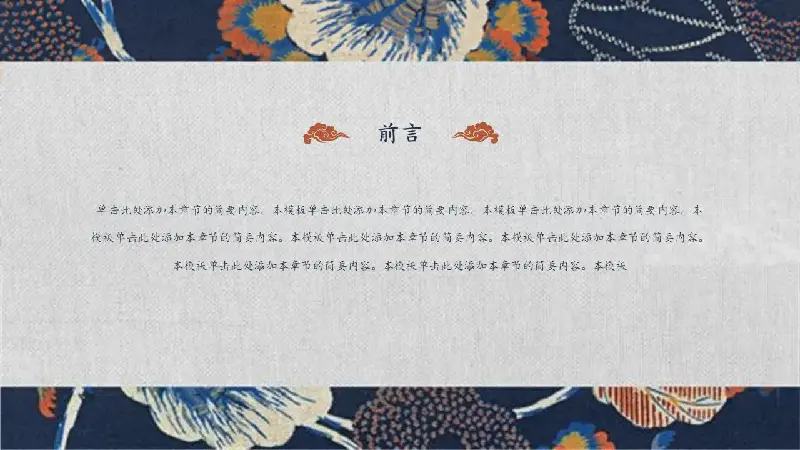 前言
单击此处添加本章节的简要内容。本模板单击此处添加本章节的简要内容。本模板单击此处添加本章节的简要内容。本
模板单击此处添加本章节的简要内容。本模板单击此处添加本章节的简要内容。本模板单击此处添加本章节的简要内容。
本模板单击此处添加本章节的简要内容。本模板单击此处添加本章节的简要内容。本模板